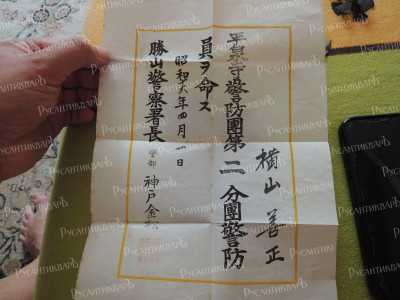 横山 善正
平泉寺警防團第二分團警防
員ヲ命ス
昭和十六年四月一日
勝山警察署長 警部 神戸金
РУСАНТИКВАРЪ